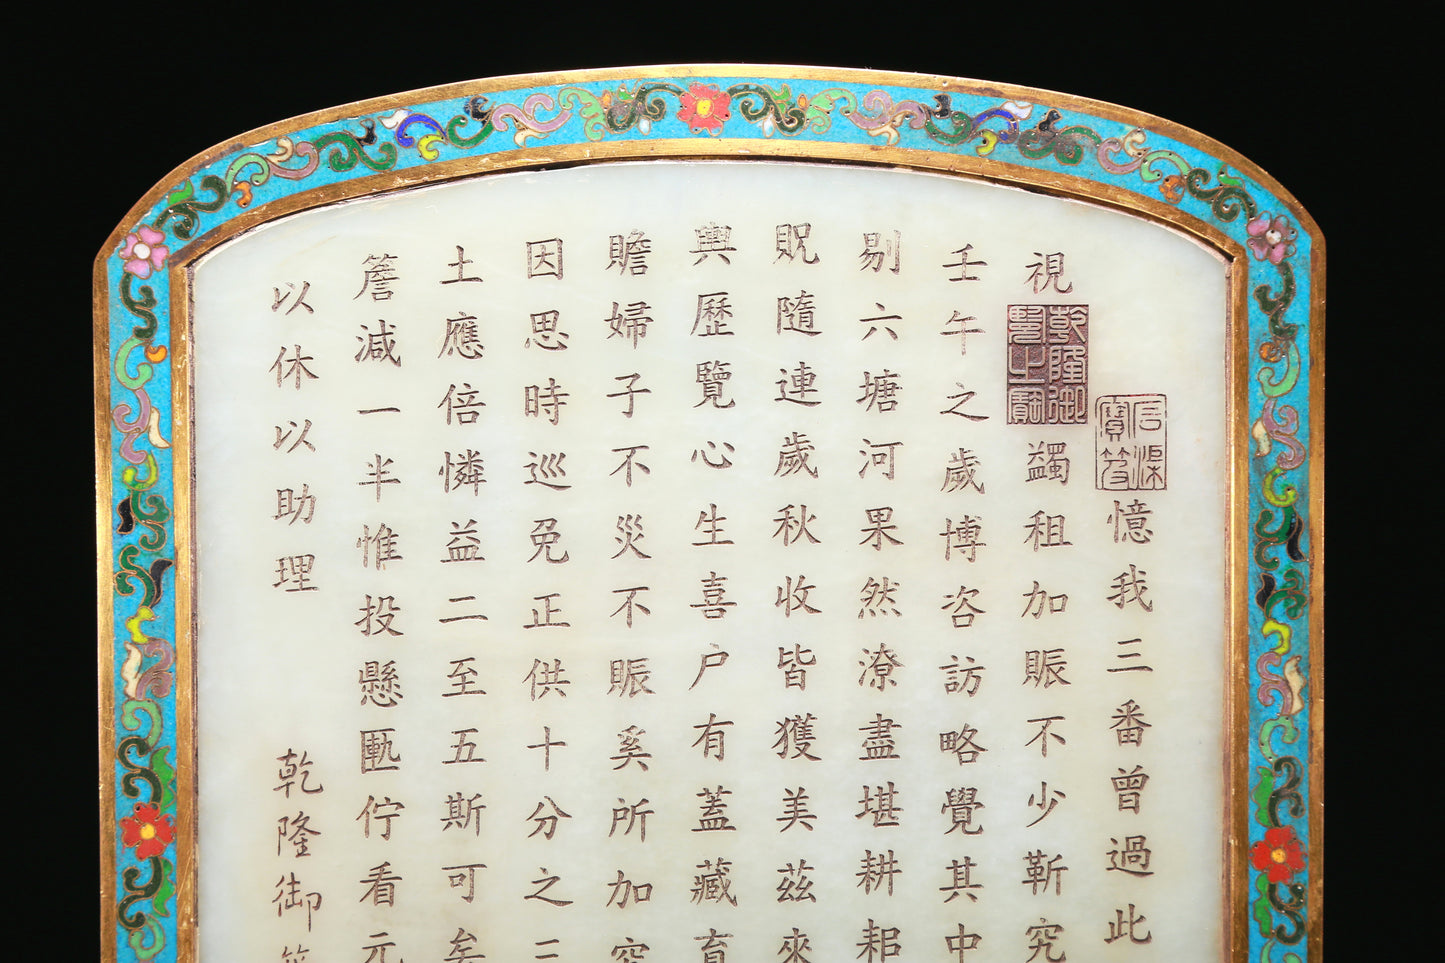 憶我三番曾過此
視蠲租加賑不少靳究
壬午之歲博咨訪略覺其中
剔六塘河果然潦盡堪耕耜
貺隨連歲秋收皆獲美茲來
輿歷覽心生喜户有蓋藏育
贍婦子不災不賑奚所加
因思時巡免正供十分之
土應倍憐益二至五斯可矣
簷減一半惟投懸匭佇看元
以休以助理
乾隆御
乾隆御覽之寶